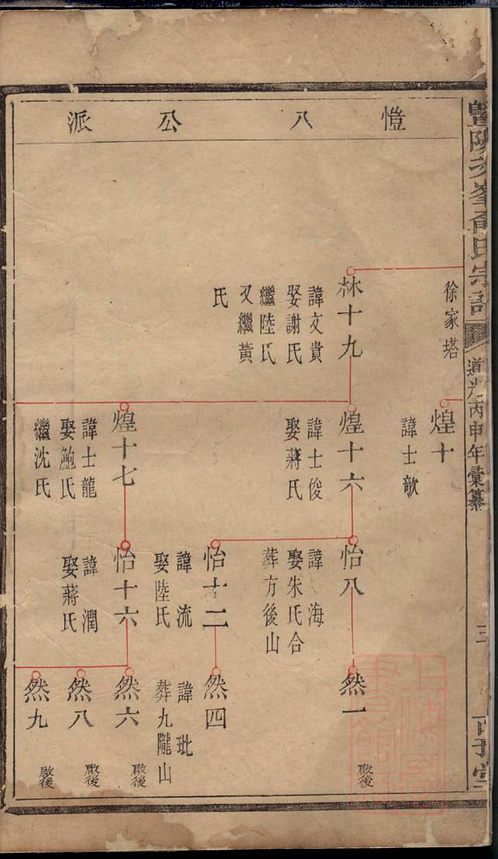 愷八公派
道光丙申年彙纂
三
徐家塔
煌十
諱士歆
林十九
諱文貴
娶謝氏
繼陸氏
又繼黃
氏
煌十六
諱士俊
娶蔣氏
怡八
諱海
娶朱氏合
葬方後山
然一
啟後
怡十二
諱流
娶陸氏
然四
諱玭
葬九隴山
煌十七
諱士龍
娶鮑氏
繼沈氏
怡十六
諱潤
娶蔣氏
然六
啟後
然八
啟後
然九
啟後